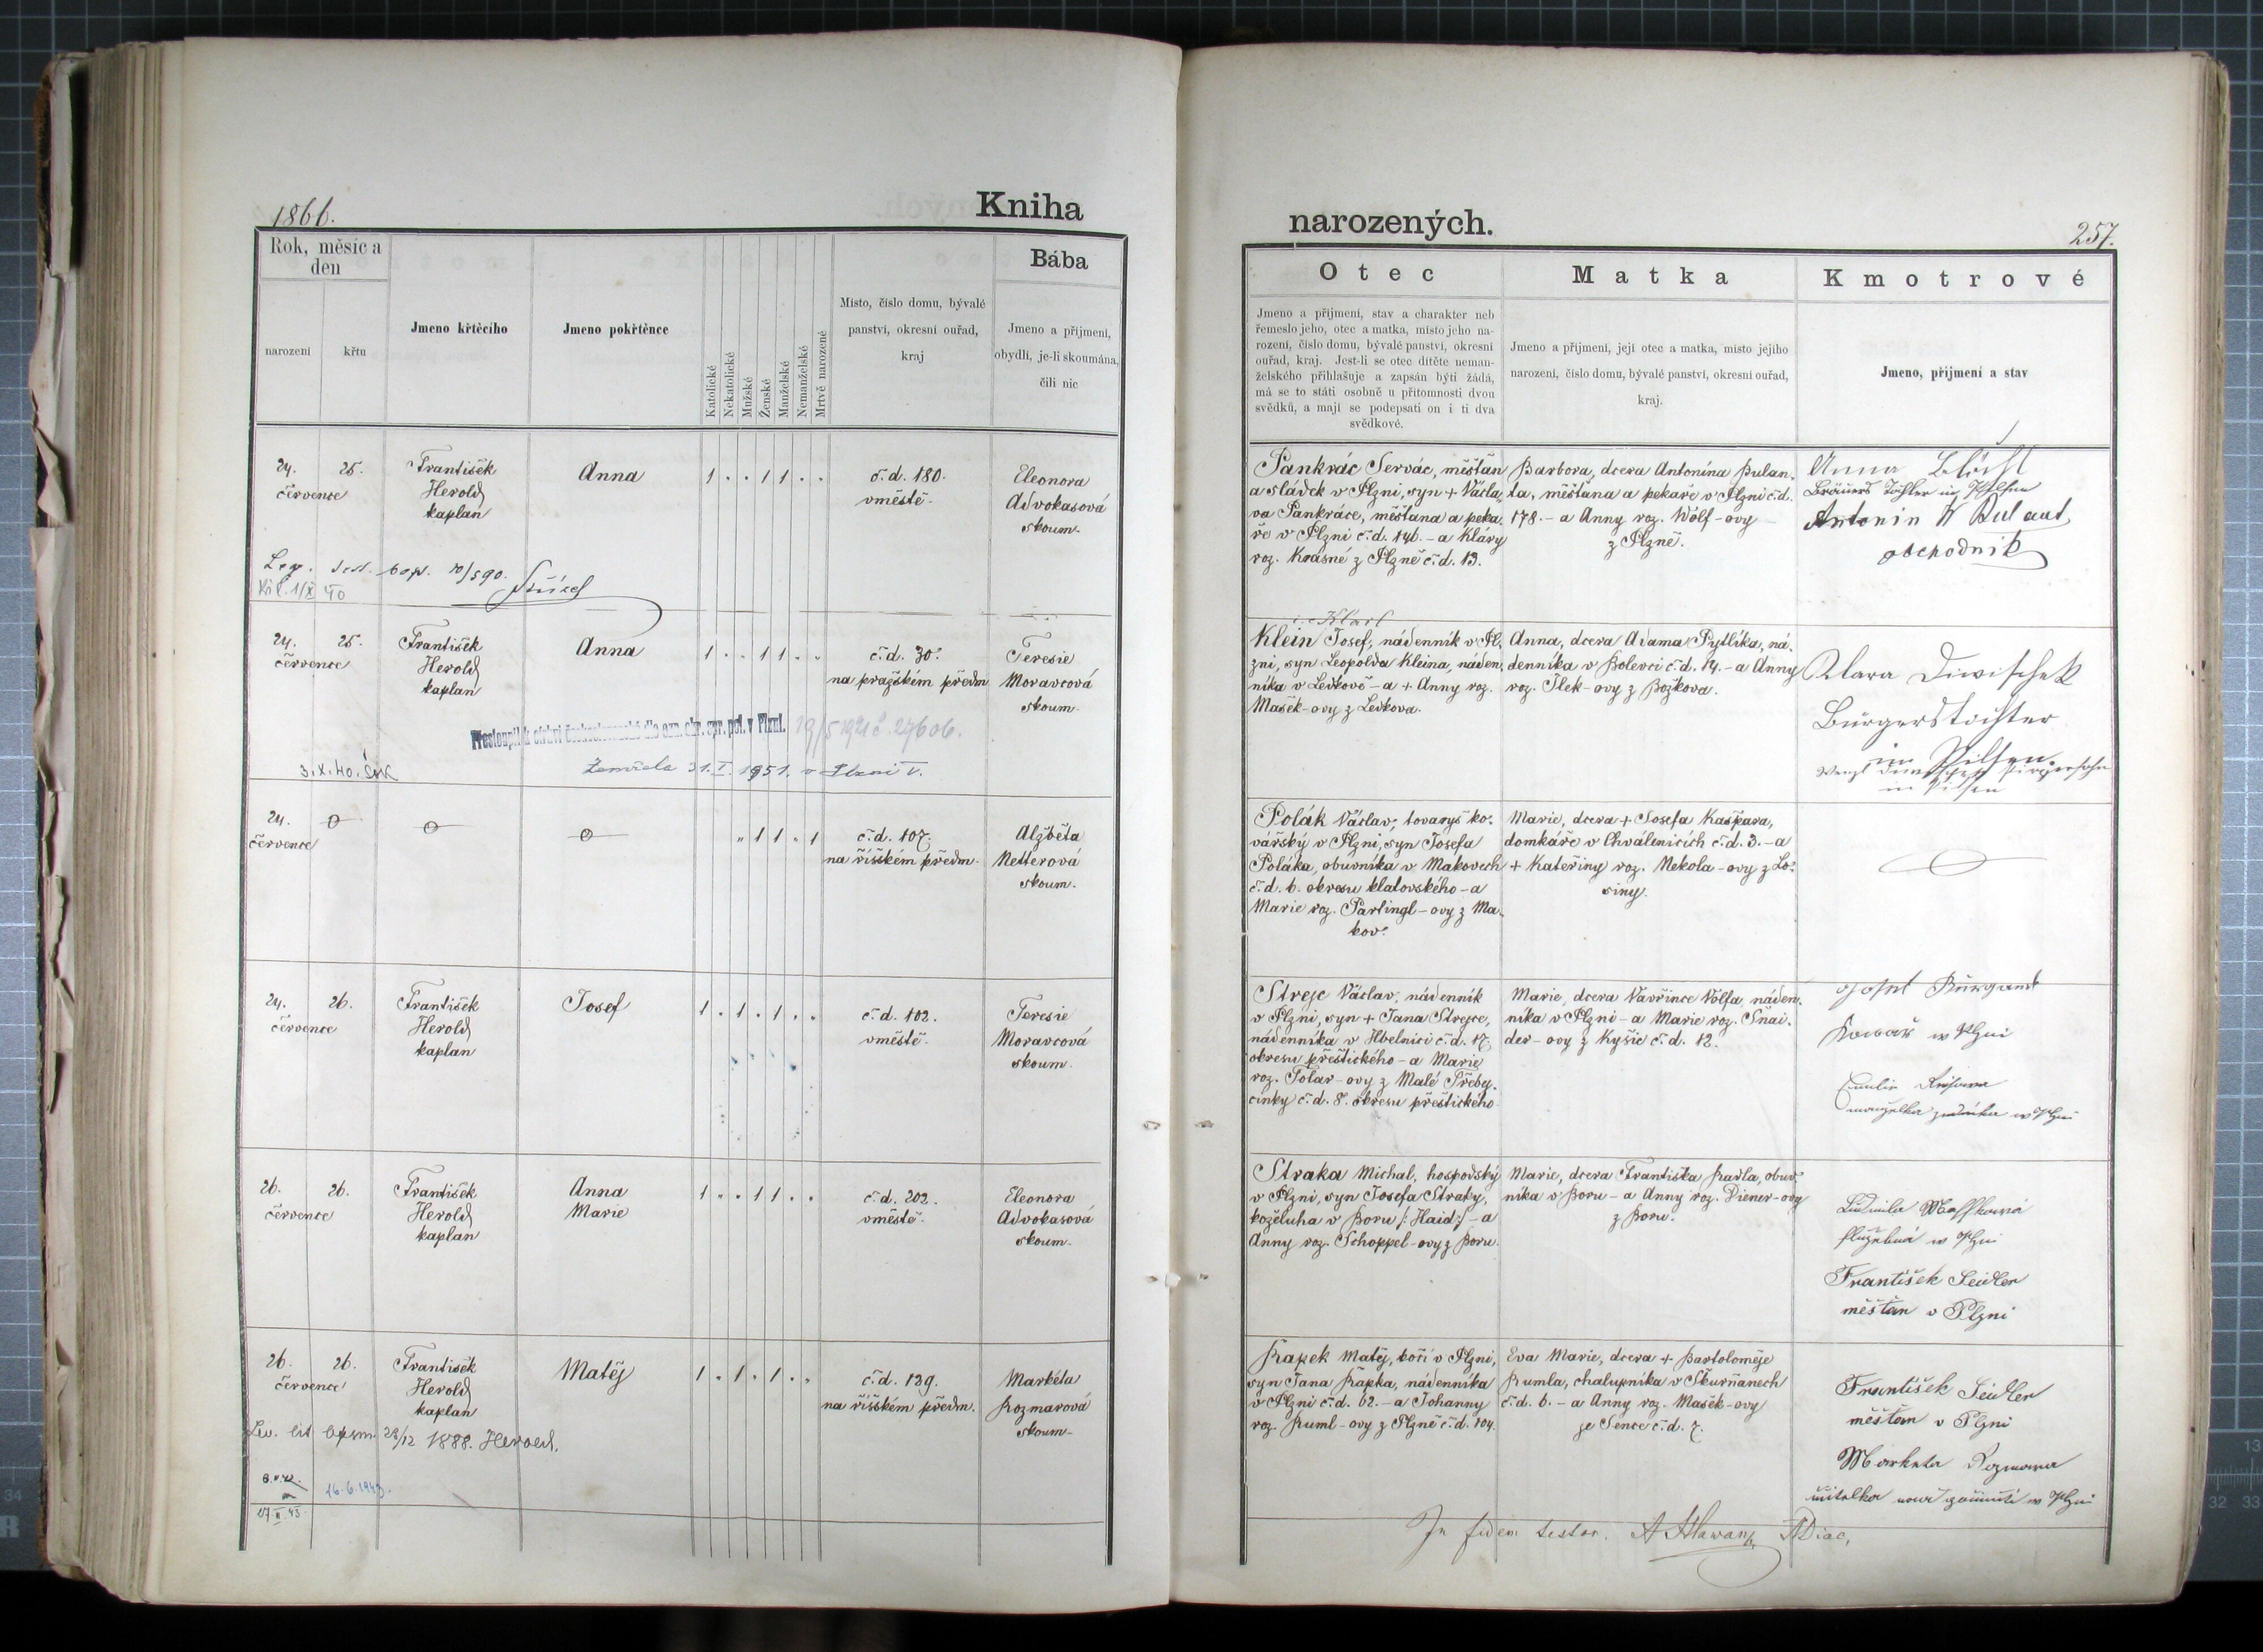 1866.
Kniha
Rok, měsíc a
den
narození
křtu
Jmeno křtěcího
Jmeno pokřtěnce
Katolické
Nekatolické
Mužské
Ženské
Manželské
Nemanželské
Mrtvě narozené
Místo, číslo domu, bývalé
panství, okresní ouřad,
kraj
Bába
Jmeno a příjmení,
obydlí, je-li skoumána,
čili nic
24. 25.
července
František
Herold
kaplan
Anna
1 . . 1 1 . .
č. d. 180.
v městě.
Eleonora
Advokasová
skoum.
24. 25.
července
František
Herold
kaplan
Anna
1 . . 1 1 . .
č. d. 30.
na pražském předm
Teresie
Moravcová
skoum.
Přestoupil k církvi československé dle ozn. okr. spr. pol. v Plzni. 19/5 1921 č. 27606.
3. X. 40.
Zemřela 31. I. 1951. v Plzni V.
24.
července
1 1 . 1
č. d. 107.
na říšském předm.
Alžběta
Netterová
skoum.
24. 26.
července
František
Herold
kaplan
Josef
1 . 1 . 1 . .
č. d. 102.
v městě.
Teresie
Moravcová
skoum.
26. 26.
července
František
Herold
kaplan
Anna
Marie
1 . . 1 1 . .
č. d. 202.
v městě.
Eleonora
Advokasová
skoum.
26. 26.
července
František
Herold
kaplan
Matěj
1 . 1 . 1 . .
č. d. 139.
na říšském předm.
Markéta
Rozmarová
skoum.
28/12 1888. Herold.
16. 6. 1943.
narozených.
257.
Otec
Matka
Kmotrové
Jmeno a příjmení, stav a charakter neb
řemeslo jeho, otec a matka, místo jeho na-
rození, číslo domu, bývalé panství, okresní
ouřad, kraj. Jest-li se otec dítěte neman-
želského přihlašuje a zapsán býti žádá,
má se to státi osobně u přítomnosti dvou
svědků, a mají se podepsati on i ti dva
svědkové.
Jmeno a příjmení, její otec a matka, místo jejího
narození, číslo domu, bývalé panství, okresní ouřad,
kraj.
Jmeno, příjmení a stav
Pankrác Servác, měšťan
a sládek v Plzni, syn + Václa-
va Pankráce, měšťana a peka-
ře v Plzni č. d. 146. - a Kláry
roz. Krásné z Plzně č. d. 13.
Barbora, dcera Antonína Bulan-
ta, měšťana a pekaře v Plzni č. d.
178. - a Anny roz. Wölf-ovy
z Plzně.
Anna
Bräuers Tochter in Pilsen
Antonin Bulant
obchodnik
Klein Josef, nádenník v Pl-
zni, syn Leopolda Kleina, náden-
níka v Ledkově - a + Anny roz.
Mašek-ovy z Ledkova.
Anna, dcera Adama Pytlíka, ná-
denníka v Bolevci č. d. 14. - a Anny
roz. Jlek-ovy z Božkova.
Klara Diwischek
Bürgerstochter
in Pilsen
Polák Václav, tovaryš ko-
vářský v Plzni, syn Josefa
Poláka, obuvníka v Makovech
č. d. 6. okresu klatovského - a
Marie roz. Partingl-ovy z Ma-
kov.
Marie, dcera + Josefa Kašpara,
domkáře v Chválenicích č. d. 3. - a
+ Kateřiny roz. Nekola-ovy z Lo-
siny.
Strejc Václav, nádenník
v Plzni, syn + Jana Strejce,
nádenníka v č. d. 17.
okresu přeštického - a Marie
roz. Tolar-ovy z Malé
č. d. 8. okresu přeštického
Marie, dcera Vavřince Volfa, náden-
níka v Plzni - a Marie roz. Šnai-
der-ovy z Kyšic č. d. 12.
Josef
kovař w Plzni
manželka w Plzni
Straka Michal, hospodský
v Plzni, syn Josefa Straky,
koželuha v Boru /: Haid :/ - a
Anny roz. Schoppel-ovy z Boru.
Marie, dcera Františka Karla, obuv-
níka v Boru - a Anny roz. Diener-ovy
z Boru.
Ludmila
w Plzni
František Seidler
měšťan v Plzni
Kapek Matěj, kočí v Plzni,
syn Jana Kapka, nádenníka
v Plzni č. d. 62. - a Johanny
roz. Ruml-ovy z Plzně č. d. 104.
Eva Marie, dcera + Bartoloměje
Rumla, chalupníka v Skurňanech
č. d. 6. - a Anny roz. Mašek-ovy
ze Sence č. d. 7.
František Seidler
měšťan v Plzni
Marketa
w Plzni
In fidem testor.